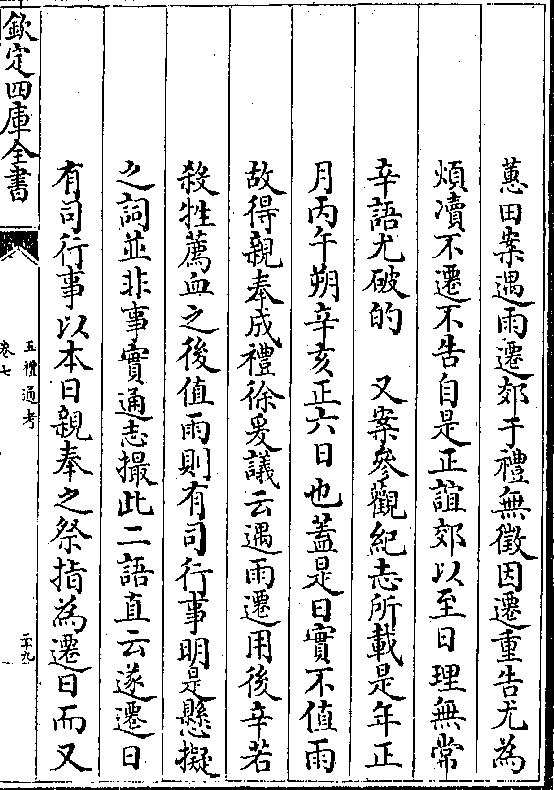 蕙田案遇雨遷郊于禮無徵因遷重告尤為
煩凟不遷不告自是正誼郊以至日理無常
辛語尤破的　又案參觀紀志所載是年正
月丙午朔辛亥正六日也蓋是日實不值雨
故得親奉成禮徐爰議云遇雨遷用後辛若
殺牲薦血之後值雨則有司行事明是懸擬
之詞並非事實通志撮此二語直云遂遷日
有司行事以本日親奉之祭指為遷日而又
欽定四庫全書
五禮通考
卷七
二十九